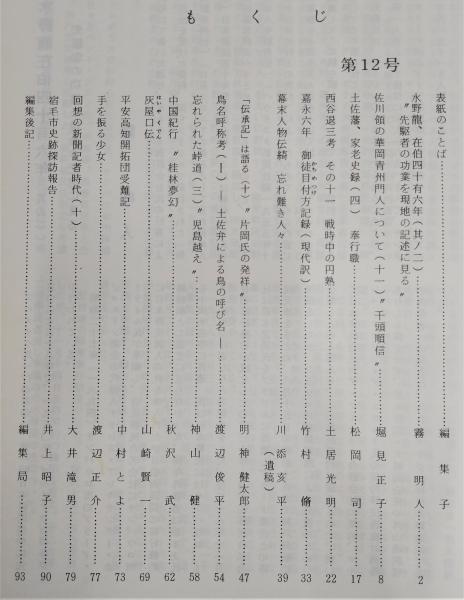 もくじ
第12号
表紙のことば…………編集子
水野龍、在伯四十有六年（其ノ二）
〝先駆者の功業を現地の記述に見る〟…………霧明人…………2
佐川領の華岡青州門人について（十一）〝千頭順信〟…………堀見正子…………8
土佐藩、家老史録（四）　奉行職…………松岡司…………17
西谷退三考　その十一　戦時中の円熟…………土居光明…………22
嘉永六年　御徒目付方記録（現代訳）…………竹村脩…………33
かちめつけ
幕末人物伝綺　忘れ難き人々…………川添亥平…………39
（遺稿）
「伝承記」は語る（十）〝片岡氏の発祥〟…………明神健太郎…………47
鳥名呼称考（一）― 土佐弁による鳥の呼び名 ―…………渡辺俊平…………54
忘れられた峠道（三）〝児島越え〟…………神山健…………58
中国紀行〝桂林夢幻〟…………秋沢武…………62
灰屋口伝…………山崎賢一…………69
はいやくでん
平安高知開拓団受難記…………中村とよ…………73
手を振る少女…………渡辺正介…………77
回想の新聞記者時代（十）…………大井滝男…………79
宿毛市史跡探訪報告…………井上昭子…………90
編集後記…………編集局…………93